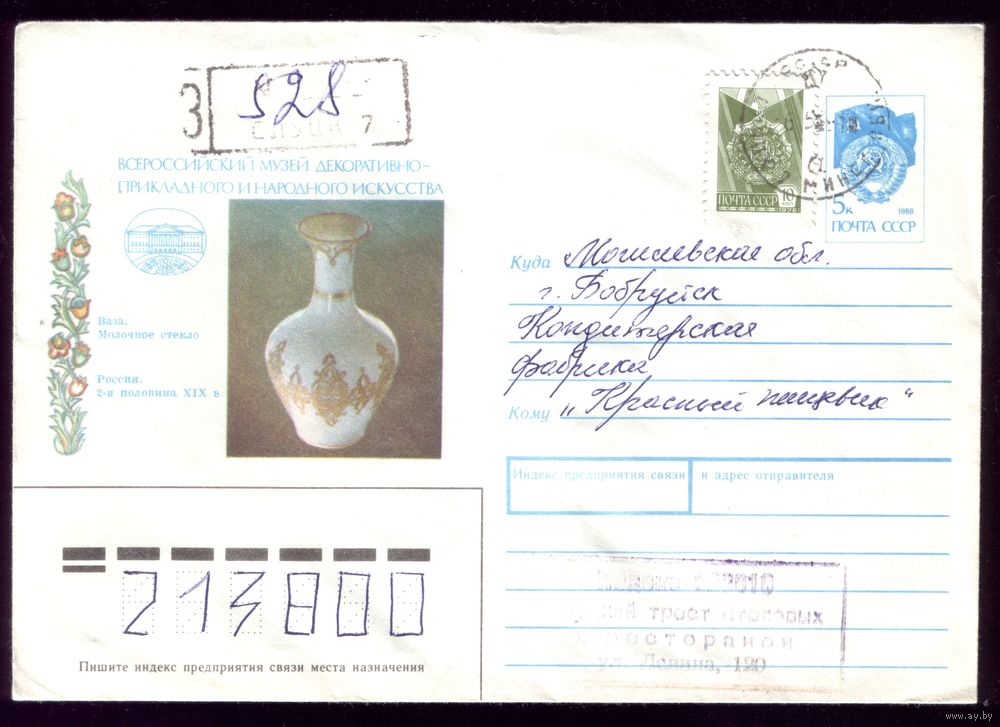 З 528
СЛУЦК 7
ВСЕРОССИЙСКИЙ МУЗЕЙ ДЕКОРАТИВНО-
ПРИКЛАДНОГО И НАРОДНОГО ИСКУССТВА
Ваза.
Молочное стекло
Россия.
2-я половина XIX в.
ПОЧТА СССР 10 КОП
1976
5к 1988
ПОЧТА СССР
Куда Могилевская обл.
г. Бобруйск
Кондитерская
фабрика
Кому „Красный пищевик“
Индекс предприятия связи и адрес отправителя
213800
Пишите индекс предприятия связи места назначения
трест столовых
ресторанов
ул. Ленина, 120
www.ay.by